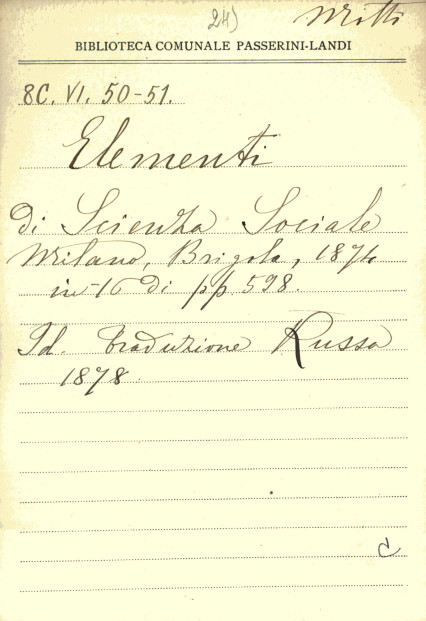 24)
BIBLIOTECA COMUNALE PASSERINI-LANDI
8C. VI. 50-51.
Elementi
di Scienza Sociale
Milano, Brigola, 1874
in-16 di pp. 598.
Id. traduzione Russa
1878.
C